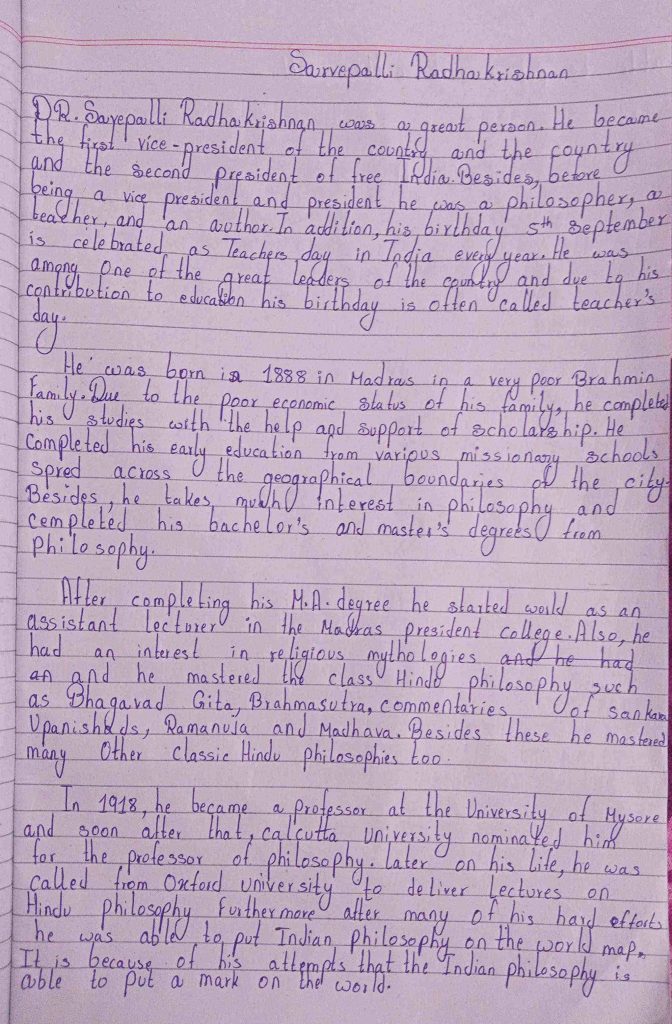 Sarvepalli Radhakrishnan
DR. Sarepalli Radhakrishnan was a great person. He became
the first vice-president of the country and the country
and the second president of free India. Besides, before
being a vice president and president he was a philosopher, a
teacher, and an author. In addition, his birthday 5th September
is celebrated as Teachers day in India every year. He was
among One of the great leaders of the country and due to his
contribution to education his birthday is often called teacher's
day.
He was born in 1888 in Madras in a very poor Brahmin
Family. Due to the poor economic status of his family, he completed
his studies with the help and support of scholarship. He
Completed his early education from various missionary schools
spred across the geographical boundaries of the city.
Besides, he takes much interest in philosophy and
completed his bachelor's and master's degrees from
Philosophy.
After completing his M.A. degree he started world as an
assistant lecturer in the Madras president college. Also, he
had an interest in religious mythologies and he had
an and he mastered the class Hindu philosophy such
as Bhagavad Gita, Brahmasutra, commentaries of sankara
Upanishads, Ramanuja and Madhava. Besides these he mastered
many Other classic Hindu philosophies too.
In 1918, he became a professor at the University of Mysore
and soon after that, calcutta University nominated him
for the professor of philosophy. later on his life, he was
called from Oxford university to deliver Lectures on
Hindu philosophy Furthermore after many of his hard efforts
he was able to put Indian philosophy on the world map.
It is because of his attempts that the Indian philosophy is
able to put a mark on the world.